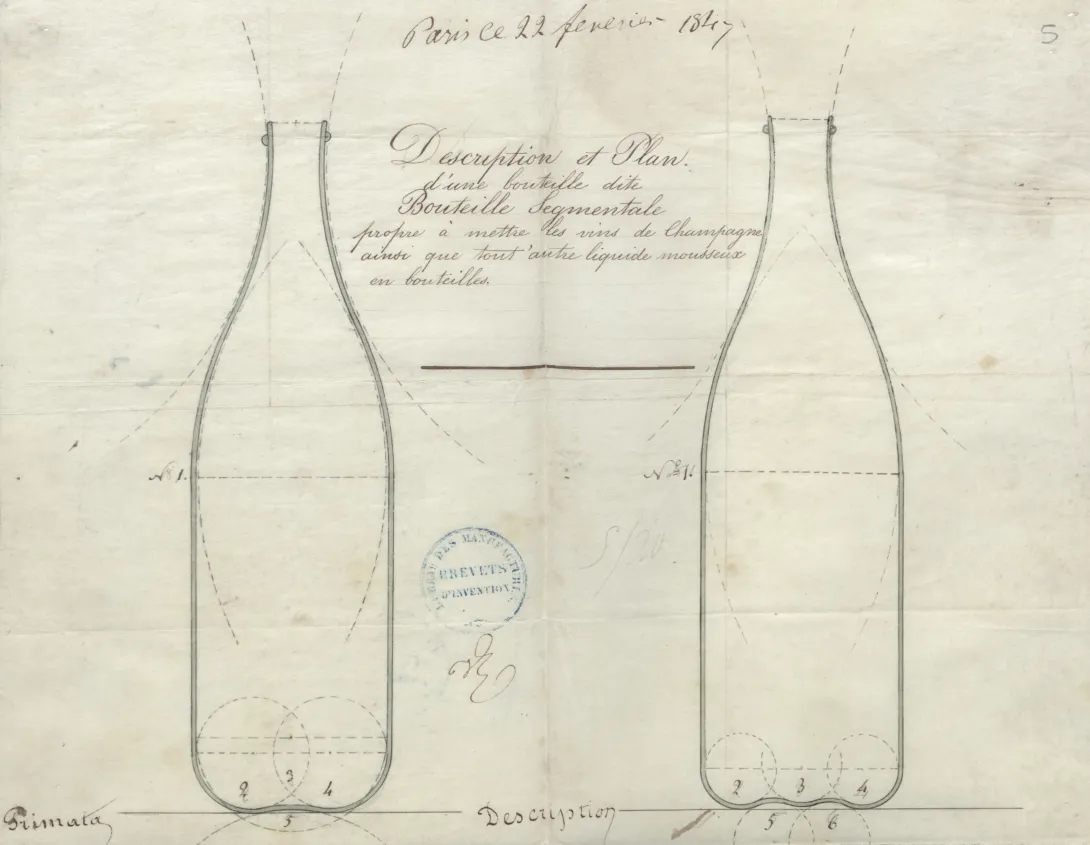 Paris Ce 22 fevrier 1847
5
Description et Plan.
d'une bouteille dite
Bouteille Segmentale
propre à mettre les vins de Champagne
ainsi que tout'autre liquide mousseux
en bouteilles.
N° 1.
N° 1.
DES MANUFACTURES
BREVETS
D'INVENTION
5/20
2 3 4
5
2 3 4
5 6
Primata
Description